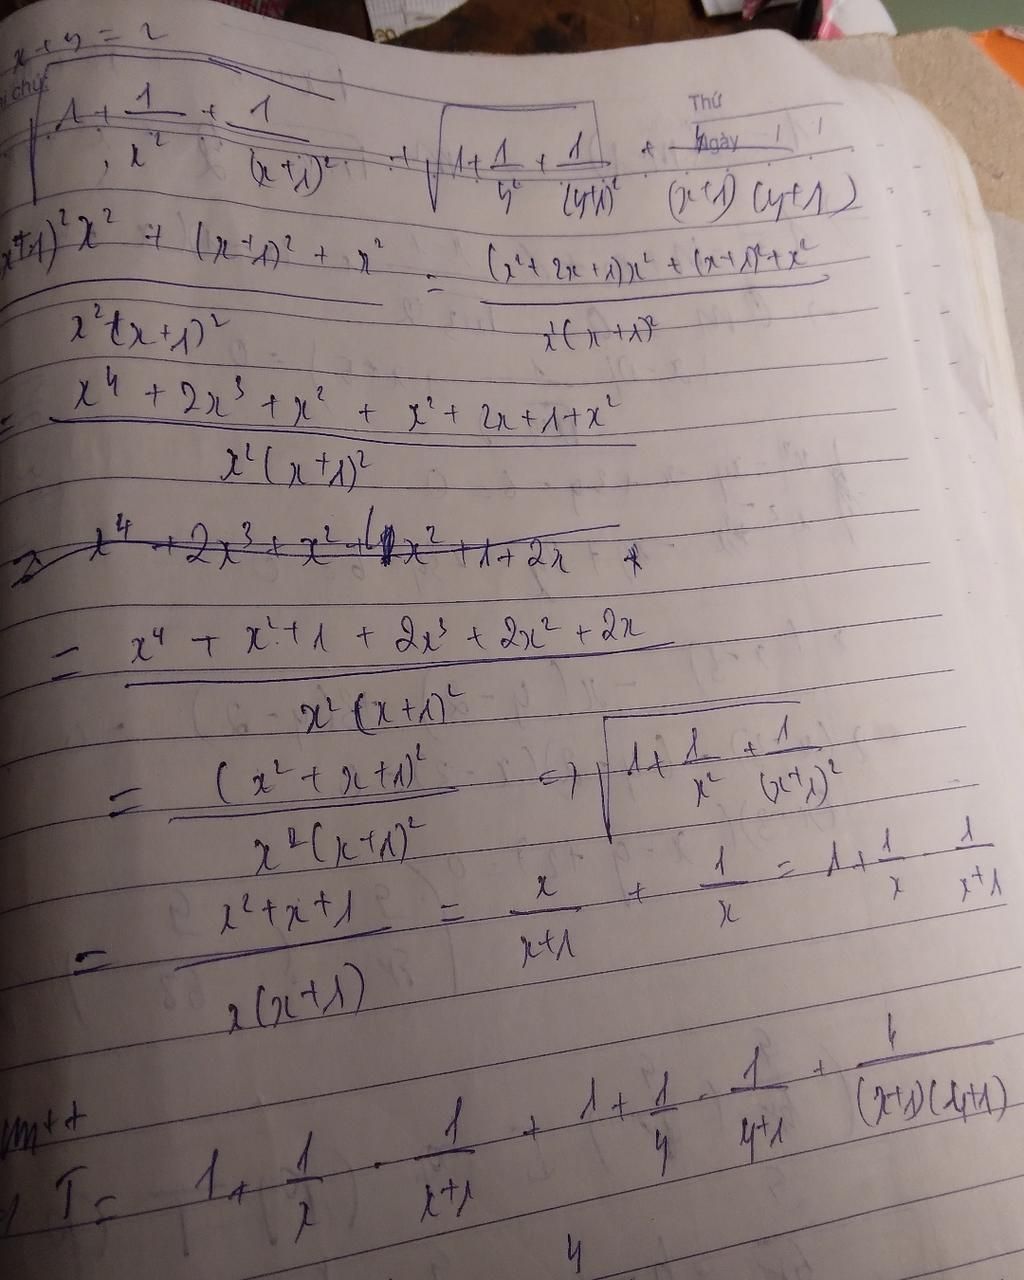 x + y = 2
i chú:
Thứ
Ngày
√(1 + 1/x² + 1/(x+1)²) + √(1 + 1/y² + 1/(y+1)²) + 4/((x+1)(y+1))
((x+1)²x² + (x+1)² + x²)/(x²(x+1)²) = ((x²+2x+1)x² + (x+1)² + x²)/(x²(x+1)²)
= (x⁴ + 2x³ + x² + x² + 2x + 1 + x²)/(x²(x+1)²)
= (x⁴ + x² + 1 + 2x³ + 2x² + 2x)/(x²(x+1)²)
= (x² + x + 1)²/(x²(x+1)²) => √(1 + 1/x² + 1/(x+1)²)
= (x² + x + 1)/(x(x+1)) = x/(x+1) + 1/x = 1 + 1/x - 1/(x+1)
m tt
T = 1 + 1/x - 1/(x+1) + 1 + 1/y - 1/(y+1) + 4/((x+1)(y+1))
4